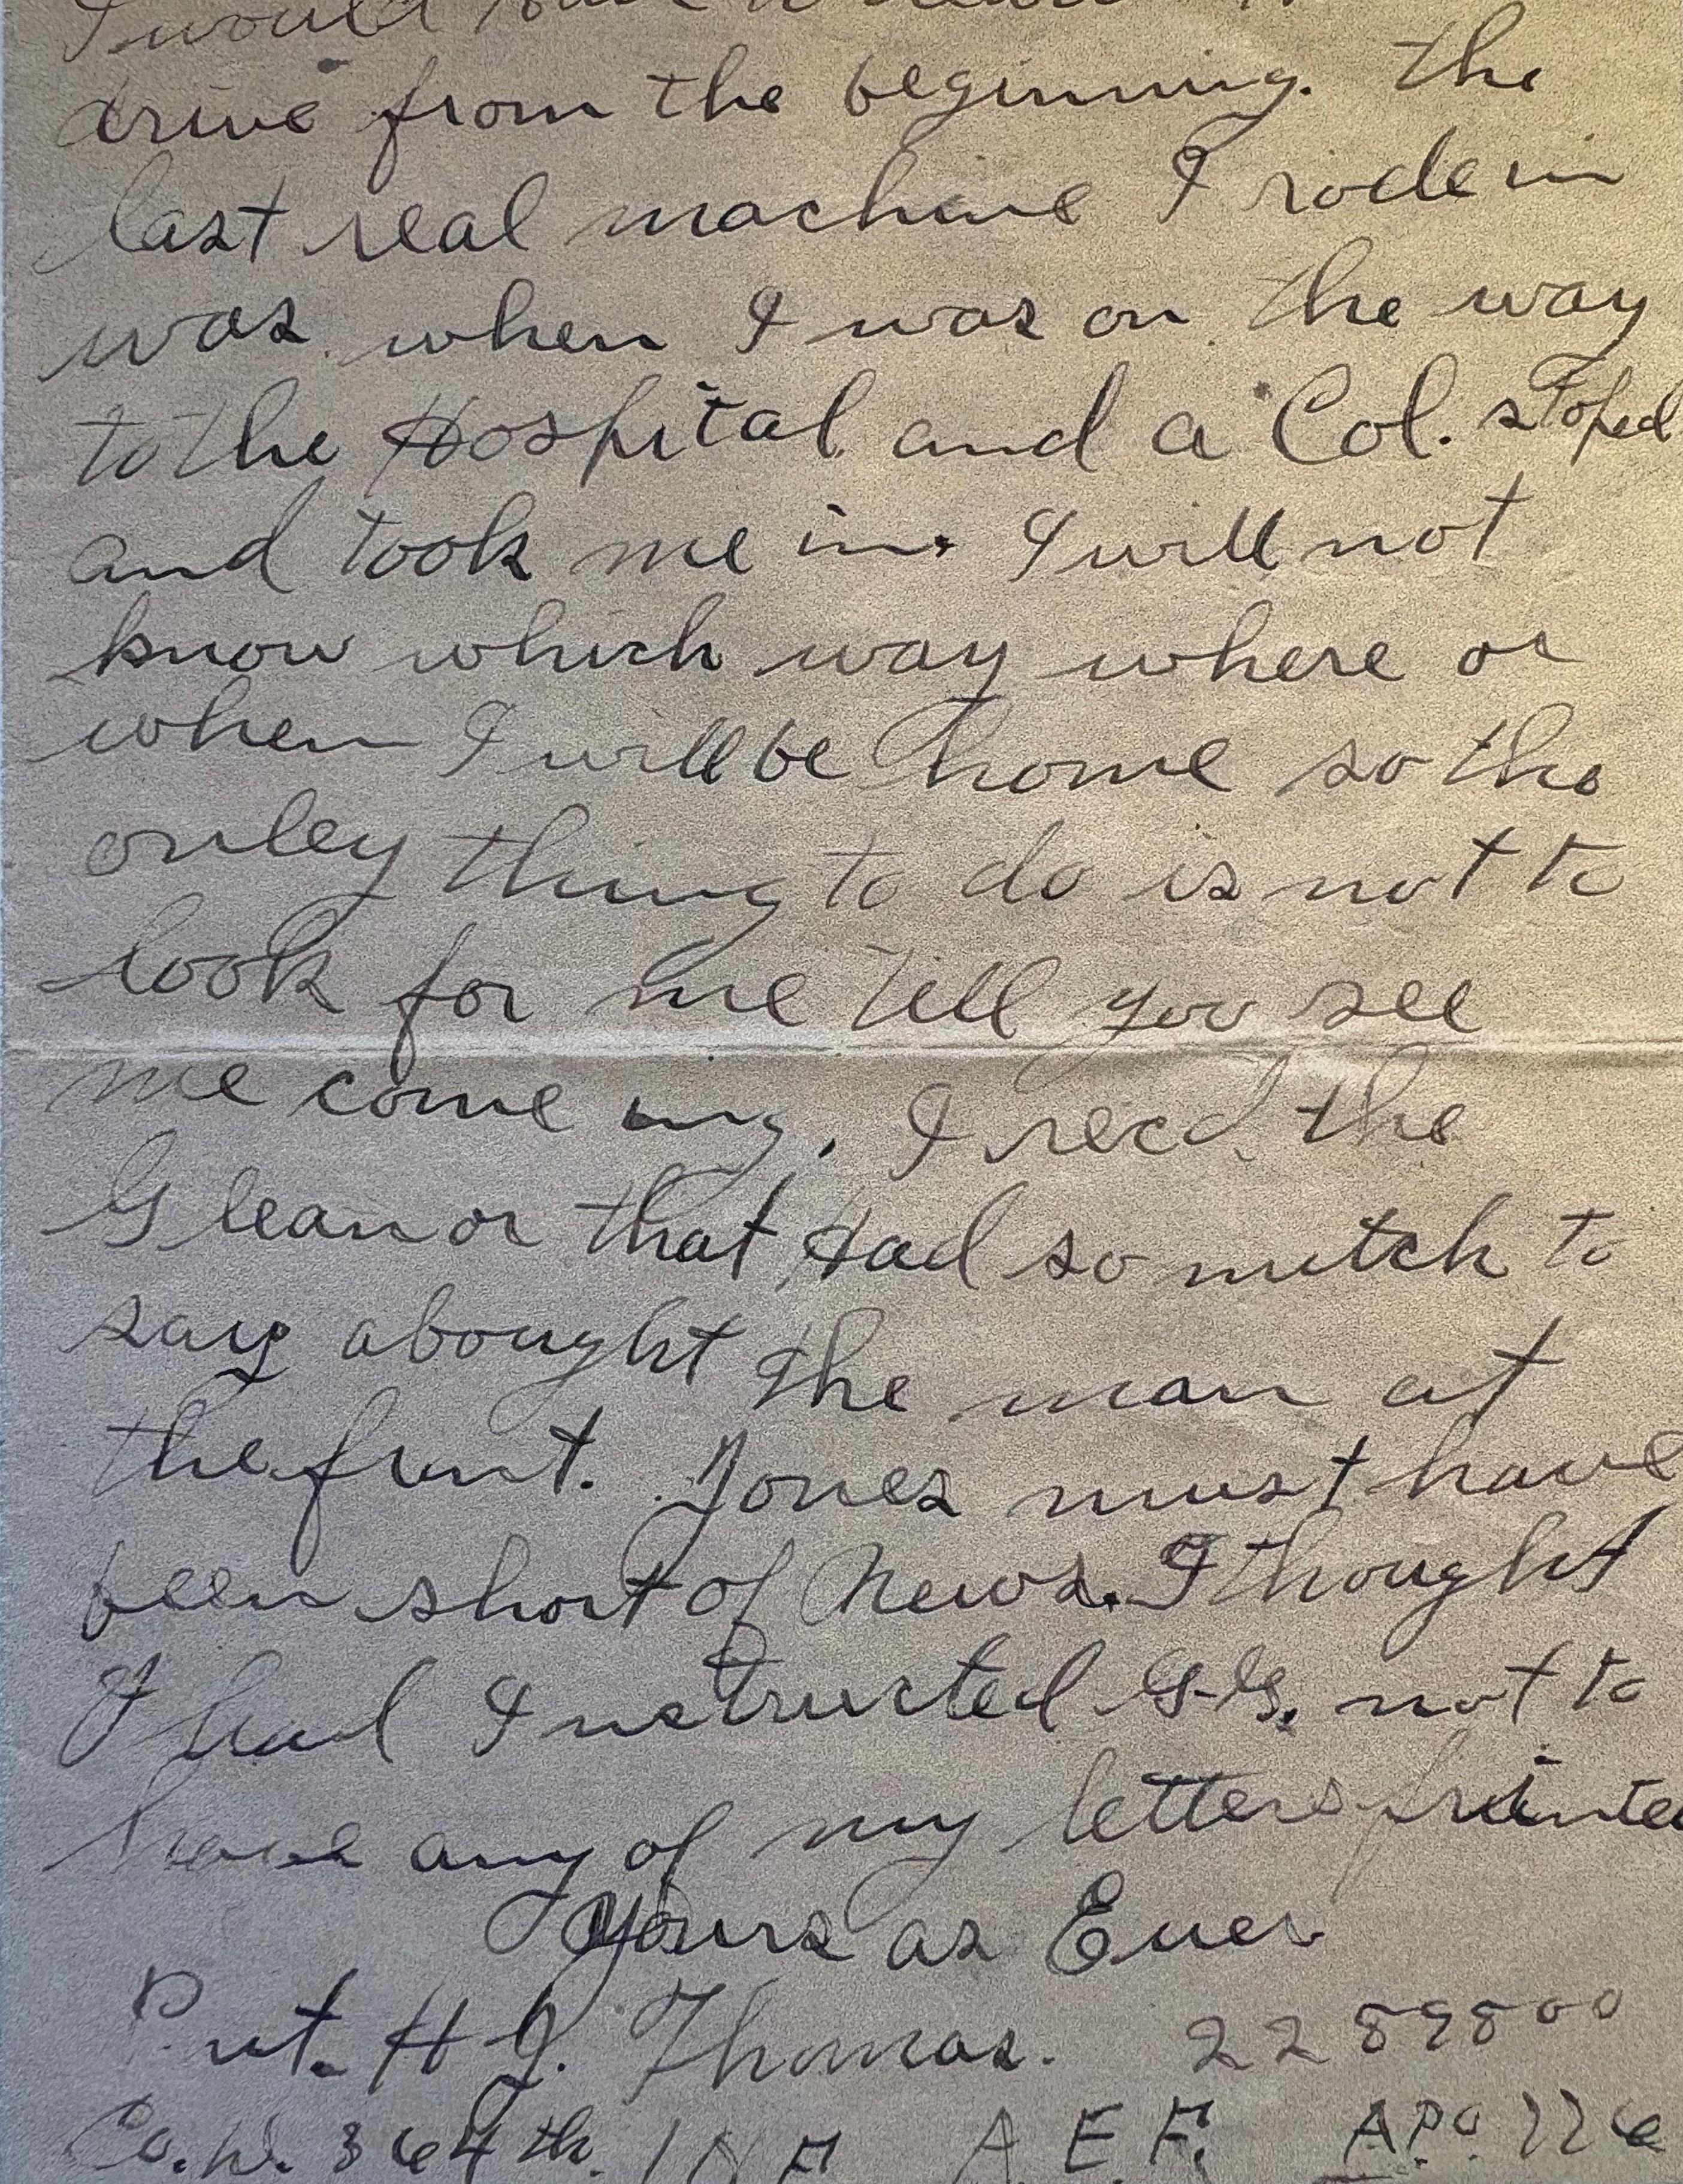 I would have
drive from the beginning. the
last real machine I rode in
was when I was on the way
to the Hospital and a Col. stoped
and took me in. I will not
know which way where or
when I will be home so the
onley thing to do is not to
look for me till you see
me come ing. I recd. the
Gleanor that Had so mutch to
say abought the man at
the frunt. Jones must have
been short of News. I thought
I had Instructed G.G. not to
have any of my letters printed
Yours as Ever
Pvt. H J. Thomas. 2289800
Co. 364th. INF A.E.F. A.P.O. 776